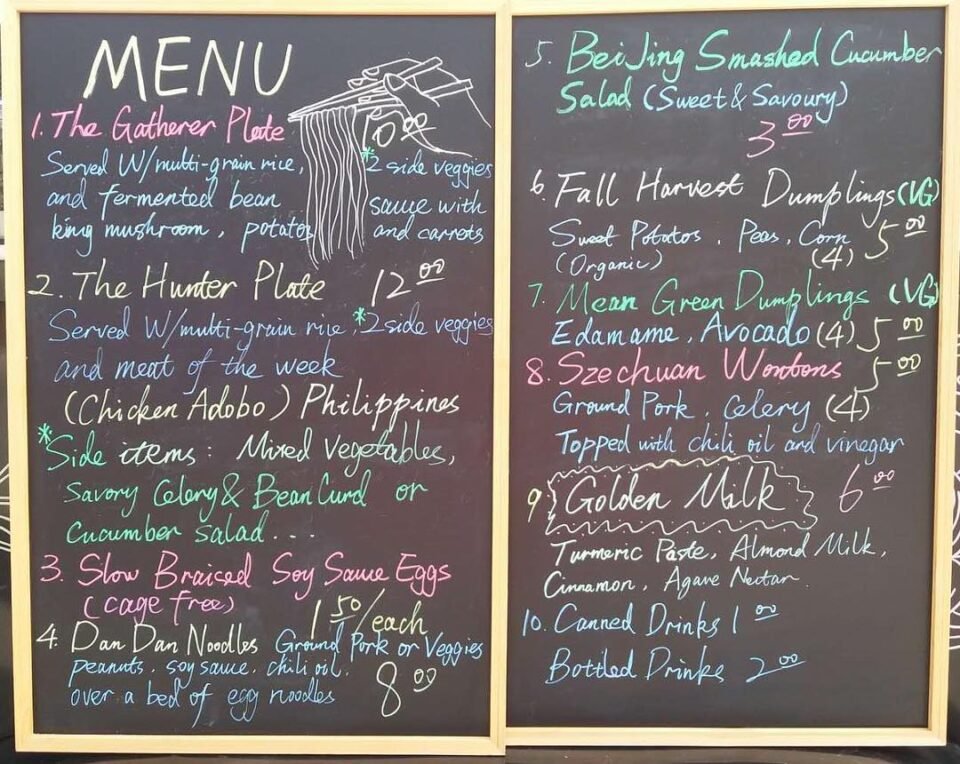 MENU
1. The Gatherer Plate 10 00
Served W/multi-grain rice, *2 side veggies
and fermented bean sauce with
king mushroom, potatos and carrots
2. The Hunter Plate 12 00
Served W/multi-grain rice, *2 side veggies
and meat of the week
(Chicken Adobo) Philippines
*Side items: Mixed Vegetables,
Savory Celery & Bean Curd or
Cucumber Salad...
3. Slow Braised Soy Sauce Eggs
(cage free) 1 50/each
4. Dan Dan Noodles Ground Pork or Veggies
peanuts, soy sauce, chili oil,
over a bed of egg noodles 8 00
5. BeiJing Smashed Cucumber
Salad (Sweet & Savoury)
3 00
6. Fall Harvest Dumplings (VG)
Sweet Potatos, Peas, Corn 5 00
(Organic) (4)
7. Mean Green Dumplings (VG)
Edamame, Avocado (4) 5 00
8. Szechuan Wontons 5 00
Ground Pork, Celery (4)
Topped with chili oil and vinegar
9. Golden Milk 6 00
Turmeric Paste, Almond Milk,
Cinnamon, Agave Nectar
10. Canned Drinks 1 00
Bottled Drinks 2 00